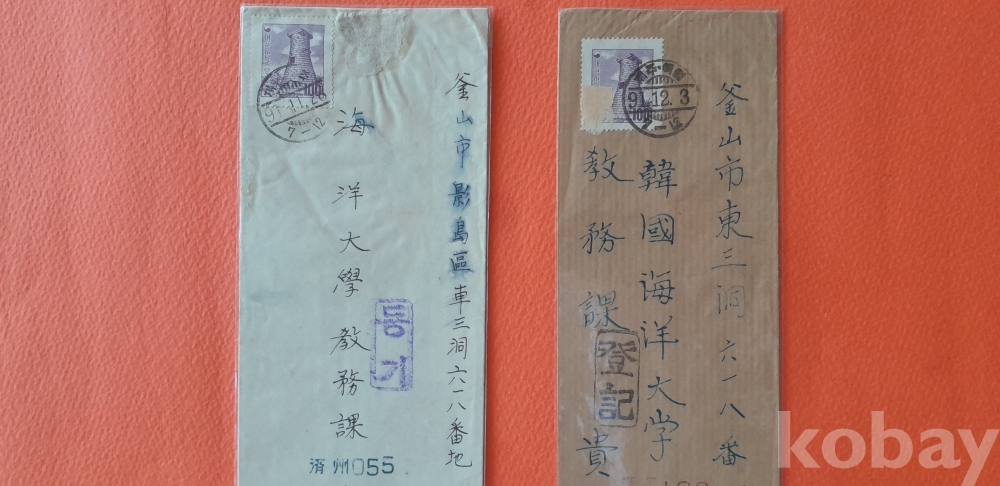 釜山市影島區車三洞六一八番地
海洋大學敎務課
등기
済州055
100
7-12
釜山市東三洞六一八番
韓國海洋大学
敎務課貴
登記
91.12.3
100
7-12
kobay